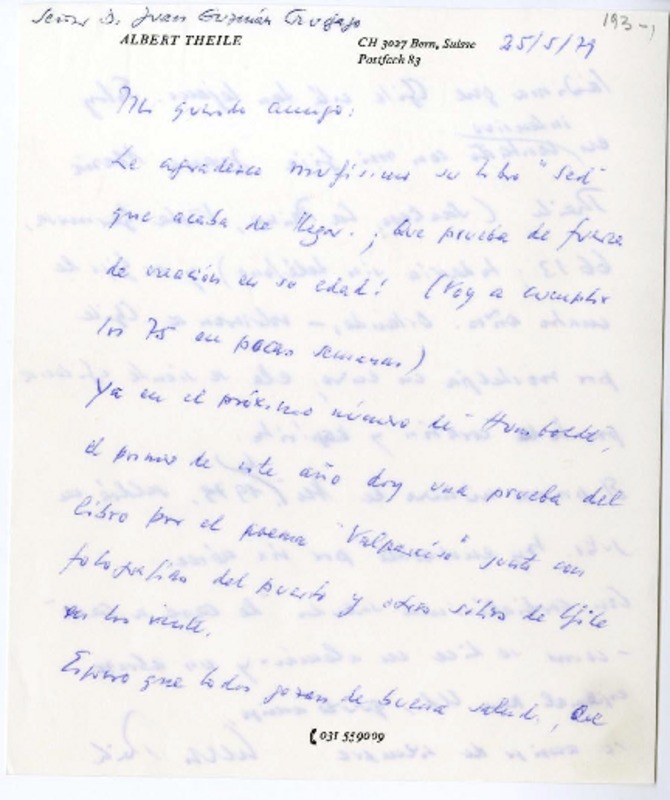 Señor D. Juan Guzmán Cruchaga
193-1
ALBERT THEILE
CH 3027 Bern, Suisse
Postfach 83
25/5/79
Mi querido amigo:
Le agradezco muchísimo su libro "Sed"
que acaba de llegar. ¡Que prueba de fuerza
de creación en su edad! (Voy a cumplir
los 75 en pocas semanas)
Ya en el próximo número de Humboldt,
el primer de este año doy una prueba del
libro por el poema "Valparaíso" junto con
fotografías del puerto y otros sitios de Chile
Espero que todos gozan de buena salud. Que
031 559009